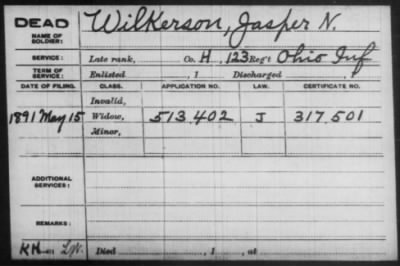 DEAD
NAME OF SOLDIER: Wilkerson, Jasper N.
SERVICE: Late rank, Co. H, 123 Reg't Ohio Inf
TERM OF SERVICE: Enlisted , 1 Discharged , 1
DATE OF FILING. CLASS. APPLICATION NO. LAW. CERTIFICATE NO.
Invalid,
1891 May 15 Widow, 513,402 J 317,501
Minor,
ADDITIONAL SERVICES:
REMARKS:
Died , 1 , at